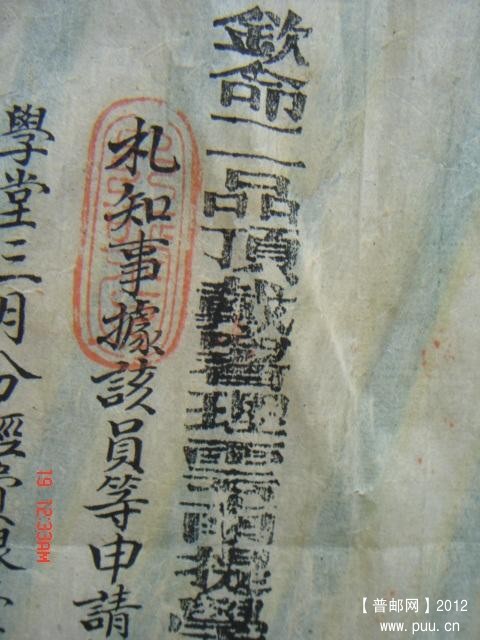 欽命二品頂戴署理雲南提學
札知事據該員等申請
學堂三月分經費銀
19 12:33AM
【普邮网】2012
www.puu.cn